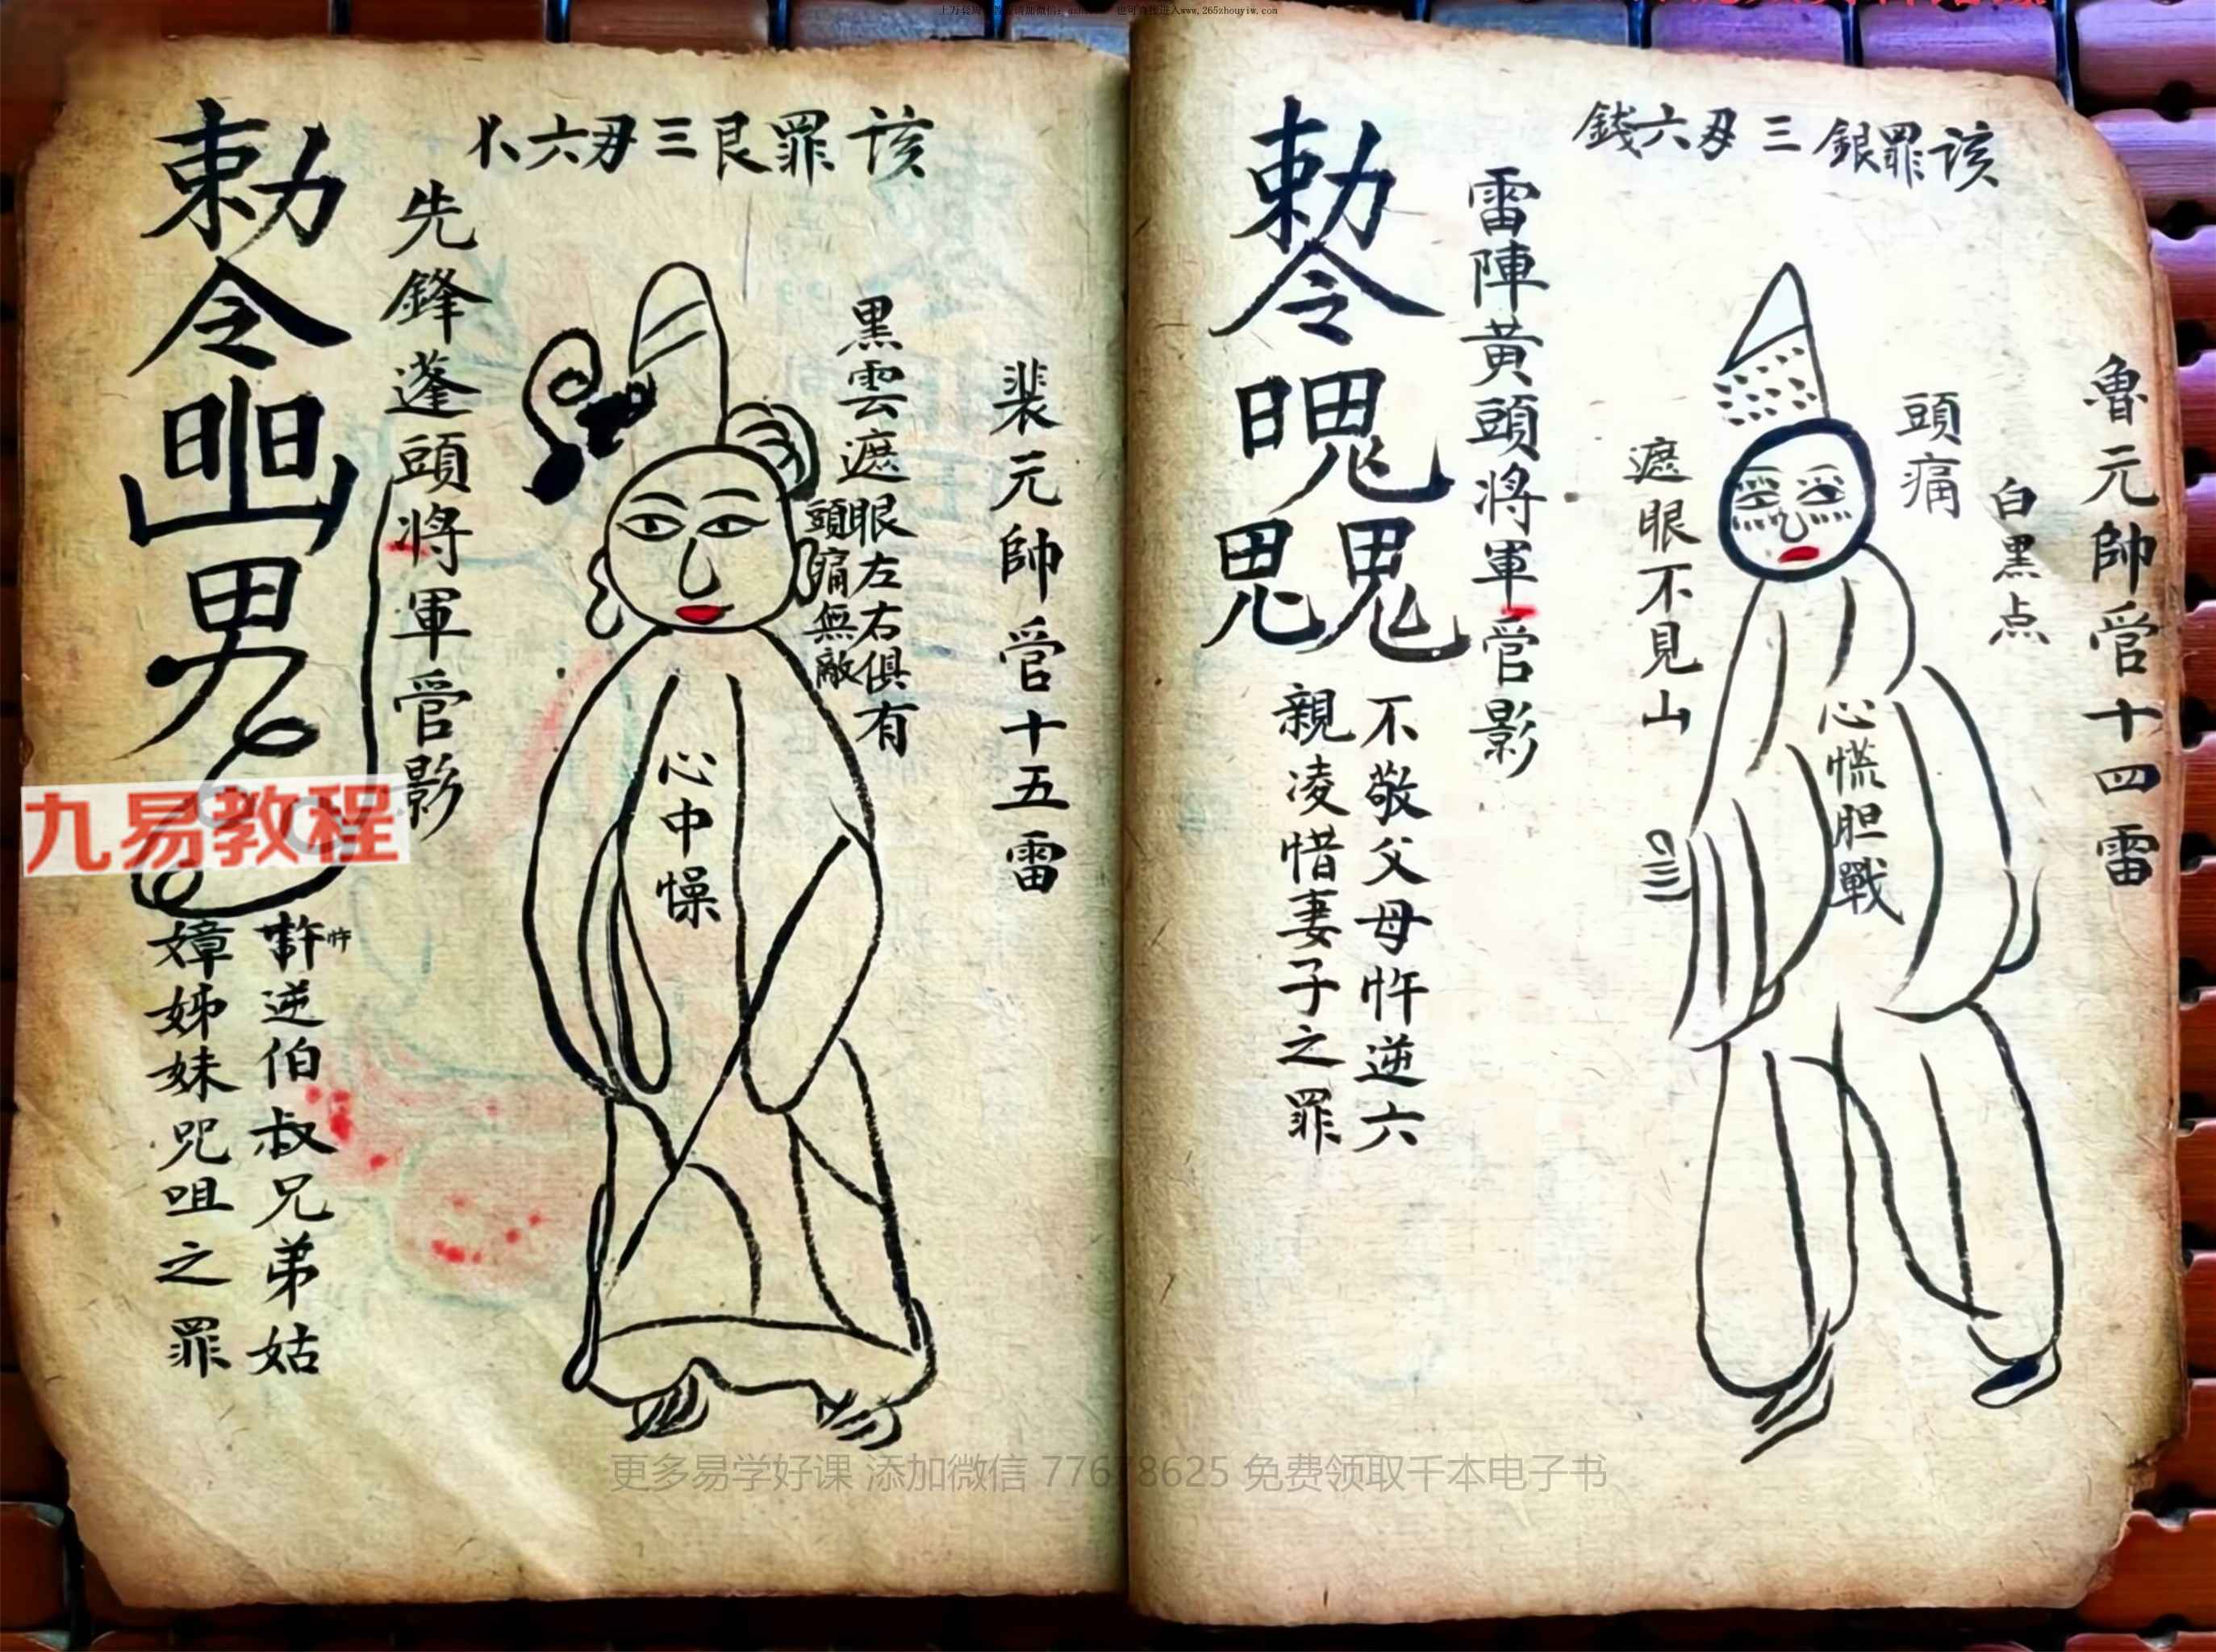 魯元帥管十四雷
该罪銀三毋六錢
白黒点
頭痛
心慌胆戰
遮眼不見山
雷陣黄頭將軍管影
勅令
不敬父母忤逆六
親凌惜妻子之罪
裴元帥管十五雷
该罪艮三毋六
黒雲遮眼左右俱有
頭痛無敵
心中懆
先鋒蓬頭將軍管影
勅令
忤
逆伯叔兄弟姑
嫜姊妹咒咀之罪
九易教程
更多易学好课 添加微信 77 8625 免费领取千本电子书
www.265zhouyiw.com